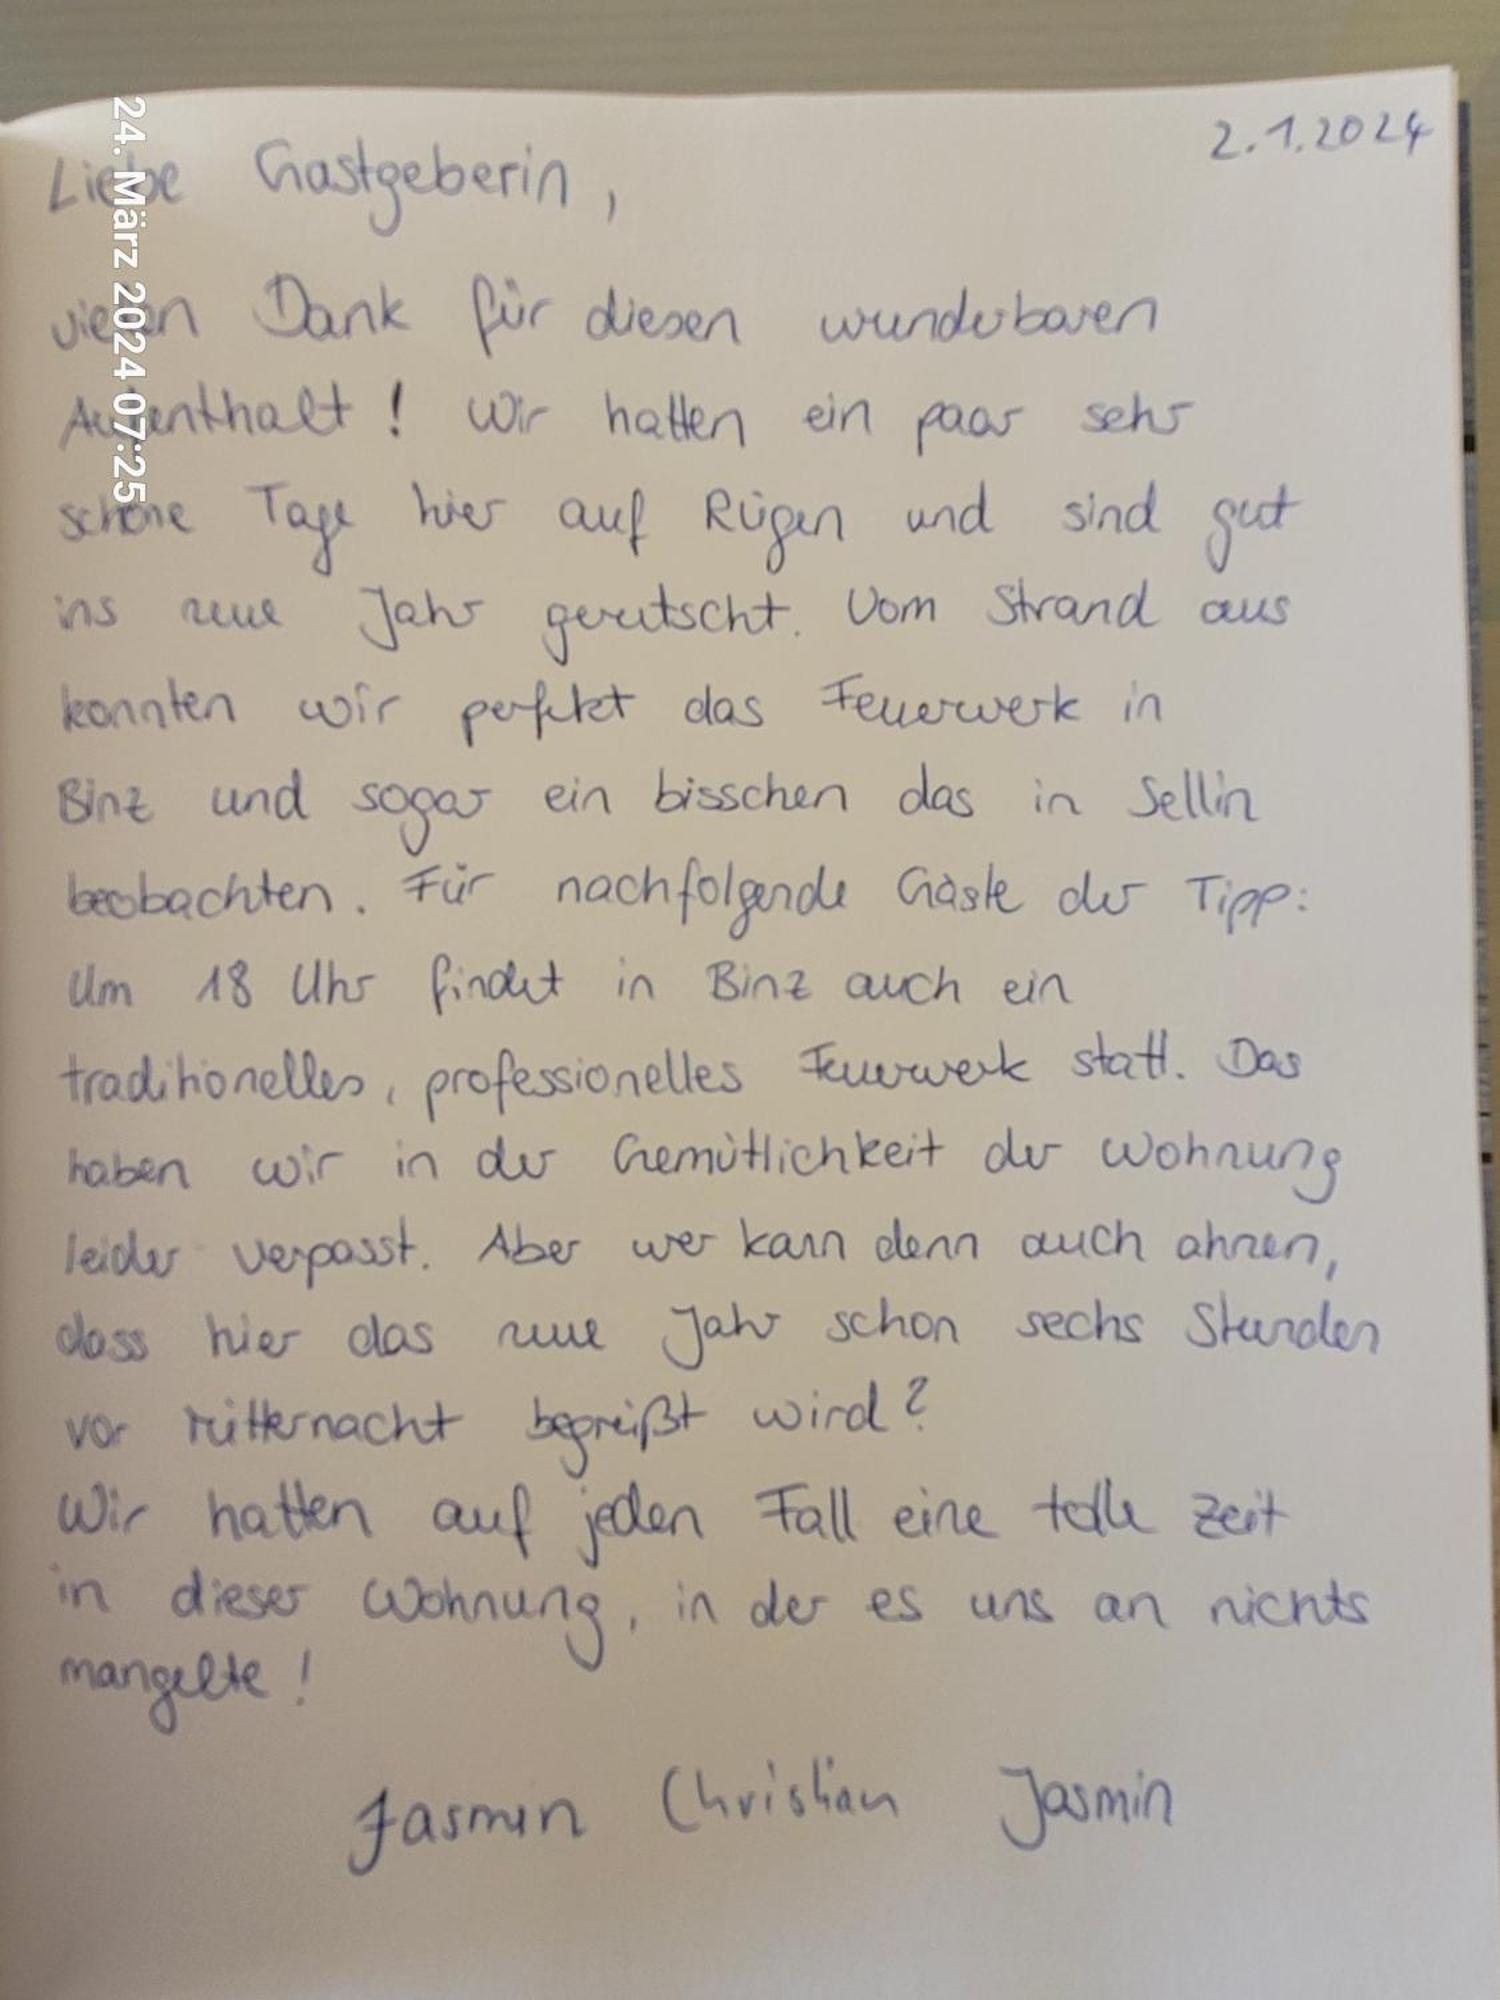 2.1.2024
Liebe Gastgeberin,
vielen Dank für diesen wunderbaren
Aufenthalt! Wir hatten ein paar sehr
schöne Tage hier auf Rügen und sind gut
ins neue Jahr gerutscht. Vom Strand aus
konnten wir perfekt das Feuerwerk in
Binz und sogar ein bisschen das in Sellin
beobachten. Für nachfolgende Gäste der Tipp:
Um 18 Uhr findet in Binz auch ein
traditionelles, professionelles Feuerwerk statt. Das
haben wir in der Gemütlichkeit der Wohnung
leider verpasst. Aber wer kann denn auch ahnen,
dass hier das neue Jahr schon sechs Stunden
vor Mitternacht begrüßt wird?
Wir hatten auf jeden Fall eine tolle Zeit
in dieser Wohnung, in der es uns an nichts
mangelte!
Jasmin Christian Jasmin
24. März 2024 07:25